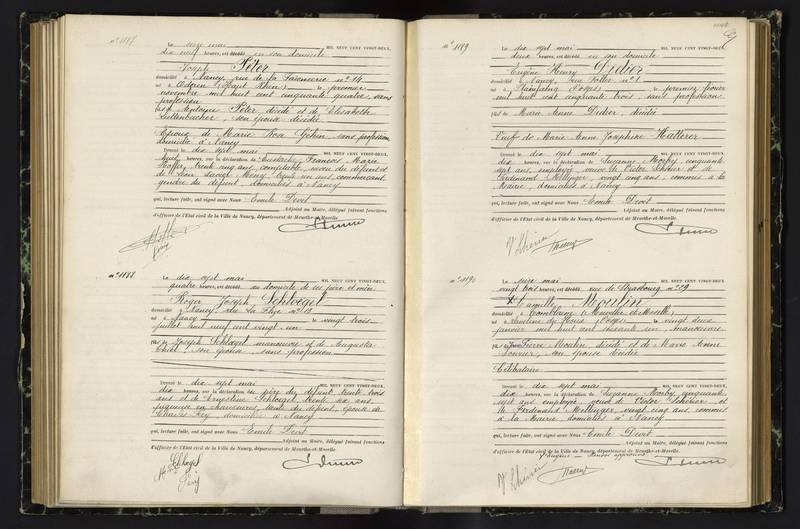 n° 1187
Le seize mai MIL NEUF CENT VINGT-DEUX,
dix neuf heures, est en son domicile
Joseph Péter
domicilié à Nancy, rue de la Faïencerie n° 14
né à Oderen (Haut Rhin) le premier
novembre mil huit cent cinquante quatre, sans
profession
fils de Antoine Péter décédé et de Elisabeth
son épouse décédée
Epoux de Marie Rose Géhin, sans profession
domiciliée à Nancy
Dressé le dix sept mai MIL NEUF CENT VINGT-DEUX,
huit heures, sur la déclaration de Eustache, François, Marie
trente cinq ans, comptable, neveu du défunt et
de Henry, trente un ans, commerçant,
gendre du défunt, domiciliés à Nancy
qui, lecture faite, ont signé avec Nous Emile Devit
Adjoint au Maire, délégué faisant fonctions
d'officier de l'Etat civil de la Ville de Nancy, département de Meurthe-et-Moselle.
n° 1188
Le dix sept mai MIL NEUF CENT VINGT-DEUX,
quatre heures, est au domicile de ses père et mère
Roger Joseph Schloegel
domicilié à Nancy, rue
né à Nancy le vingt trois
juillet mil neuf cent vingt un
fils de Joseph Schloegel manoeuvre et de Augusta
son épouse, sans profession
Dressé le dix sept mai MIL NEUF CENT VINGT-DEUX,
dix heures, sur la déclaration du père du défunt, trente trois
ans et de Ernestine Schloegel, trente six ans,
piqueuse en chaussures, tante du défunt, épouse de
Charles Fey domiciliés à Nancy
qui, lecture faite, ont signé avec Nous Emile Devit
Adjoint au Maire, délégué faisant fonctions
d'officier de l'Etat civil de la Ville de Nancy, département de Meurthe-et-Moselle.
Schloegel
Fey
n° 1189
Le dix sept mai MIL NEUF CENT VINGT-DEUX,
deux heures, est en son domicile
Eugène Henry Didier
domicilié à Nancy, rue n° 1
né à Plainfaing (Vosges) le premier février
mil huit cent cinquante trois, sans profession
fils de Marie Anne Didier, décédée
Veuf de Marie Anne Joséphine Hatterer
Dressé le dix sept mai MIL NEUF CENT VINGT-DEUX,
dix heures, sur la déclaration de Suzanne Morby, cinquante
sept ans, employée, veuve de Victor Schérier et de
Ferdinand Mellinger, vingt cinq ans, commis à la
Mairie, domiciliés à Nancy
qui, lecture faite, ont signé avec Nous Emile Devit
Adjoint au Maire, délégué faisant fonctions
d'officier de l'Etat civil de la Ville de Nancy, département de Meurthe-et-Moselle.
n° 1190
Le seize mai MIL NEUF CENT VINGT-DEUX,
vingt trois heures, est rue de Strasbourg n° 59
Camille Moulin
domicilié à (Meurthe et Moselle)
né à (Vosges) le vingt deux
janvier mil huit cent soixante un, manoeuvre
fils de Pierre Moulin décédé et de Marie Anne
son épouse décédée
Célibataire
Dressé le dix sept mai MIL NEUF CENT VINGT-DEUX,
dix heures, sur la déclaration de Suzanne Morby, cinquante
sept ans employée, veuve de Victor Schérier et
de Ferdinand Mellinger, vingt cinq ans commis
à la Mairie domiciliés à Nancy
qui, lecture faite, ont signé avec Nous Emile Devit
Adjoint au Maire, délégué faisant fonctions
d'officier de l'Etat civil de la Ville de Nancy, département de Meurthe-et-Moselle.